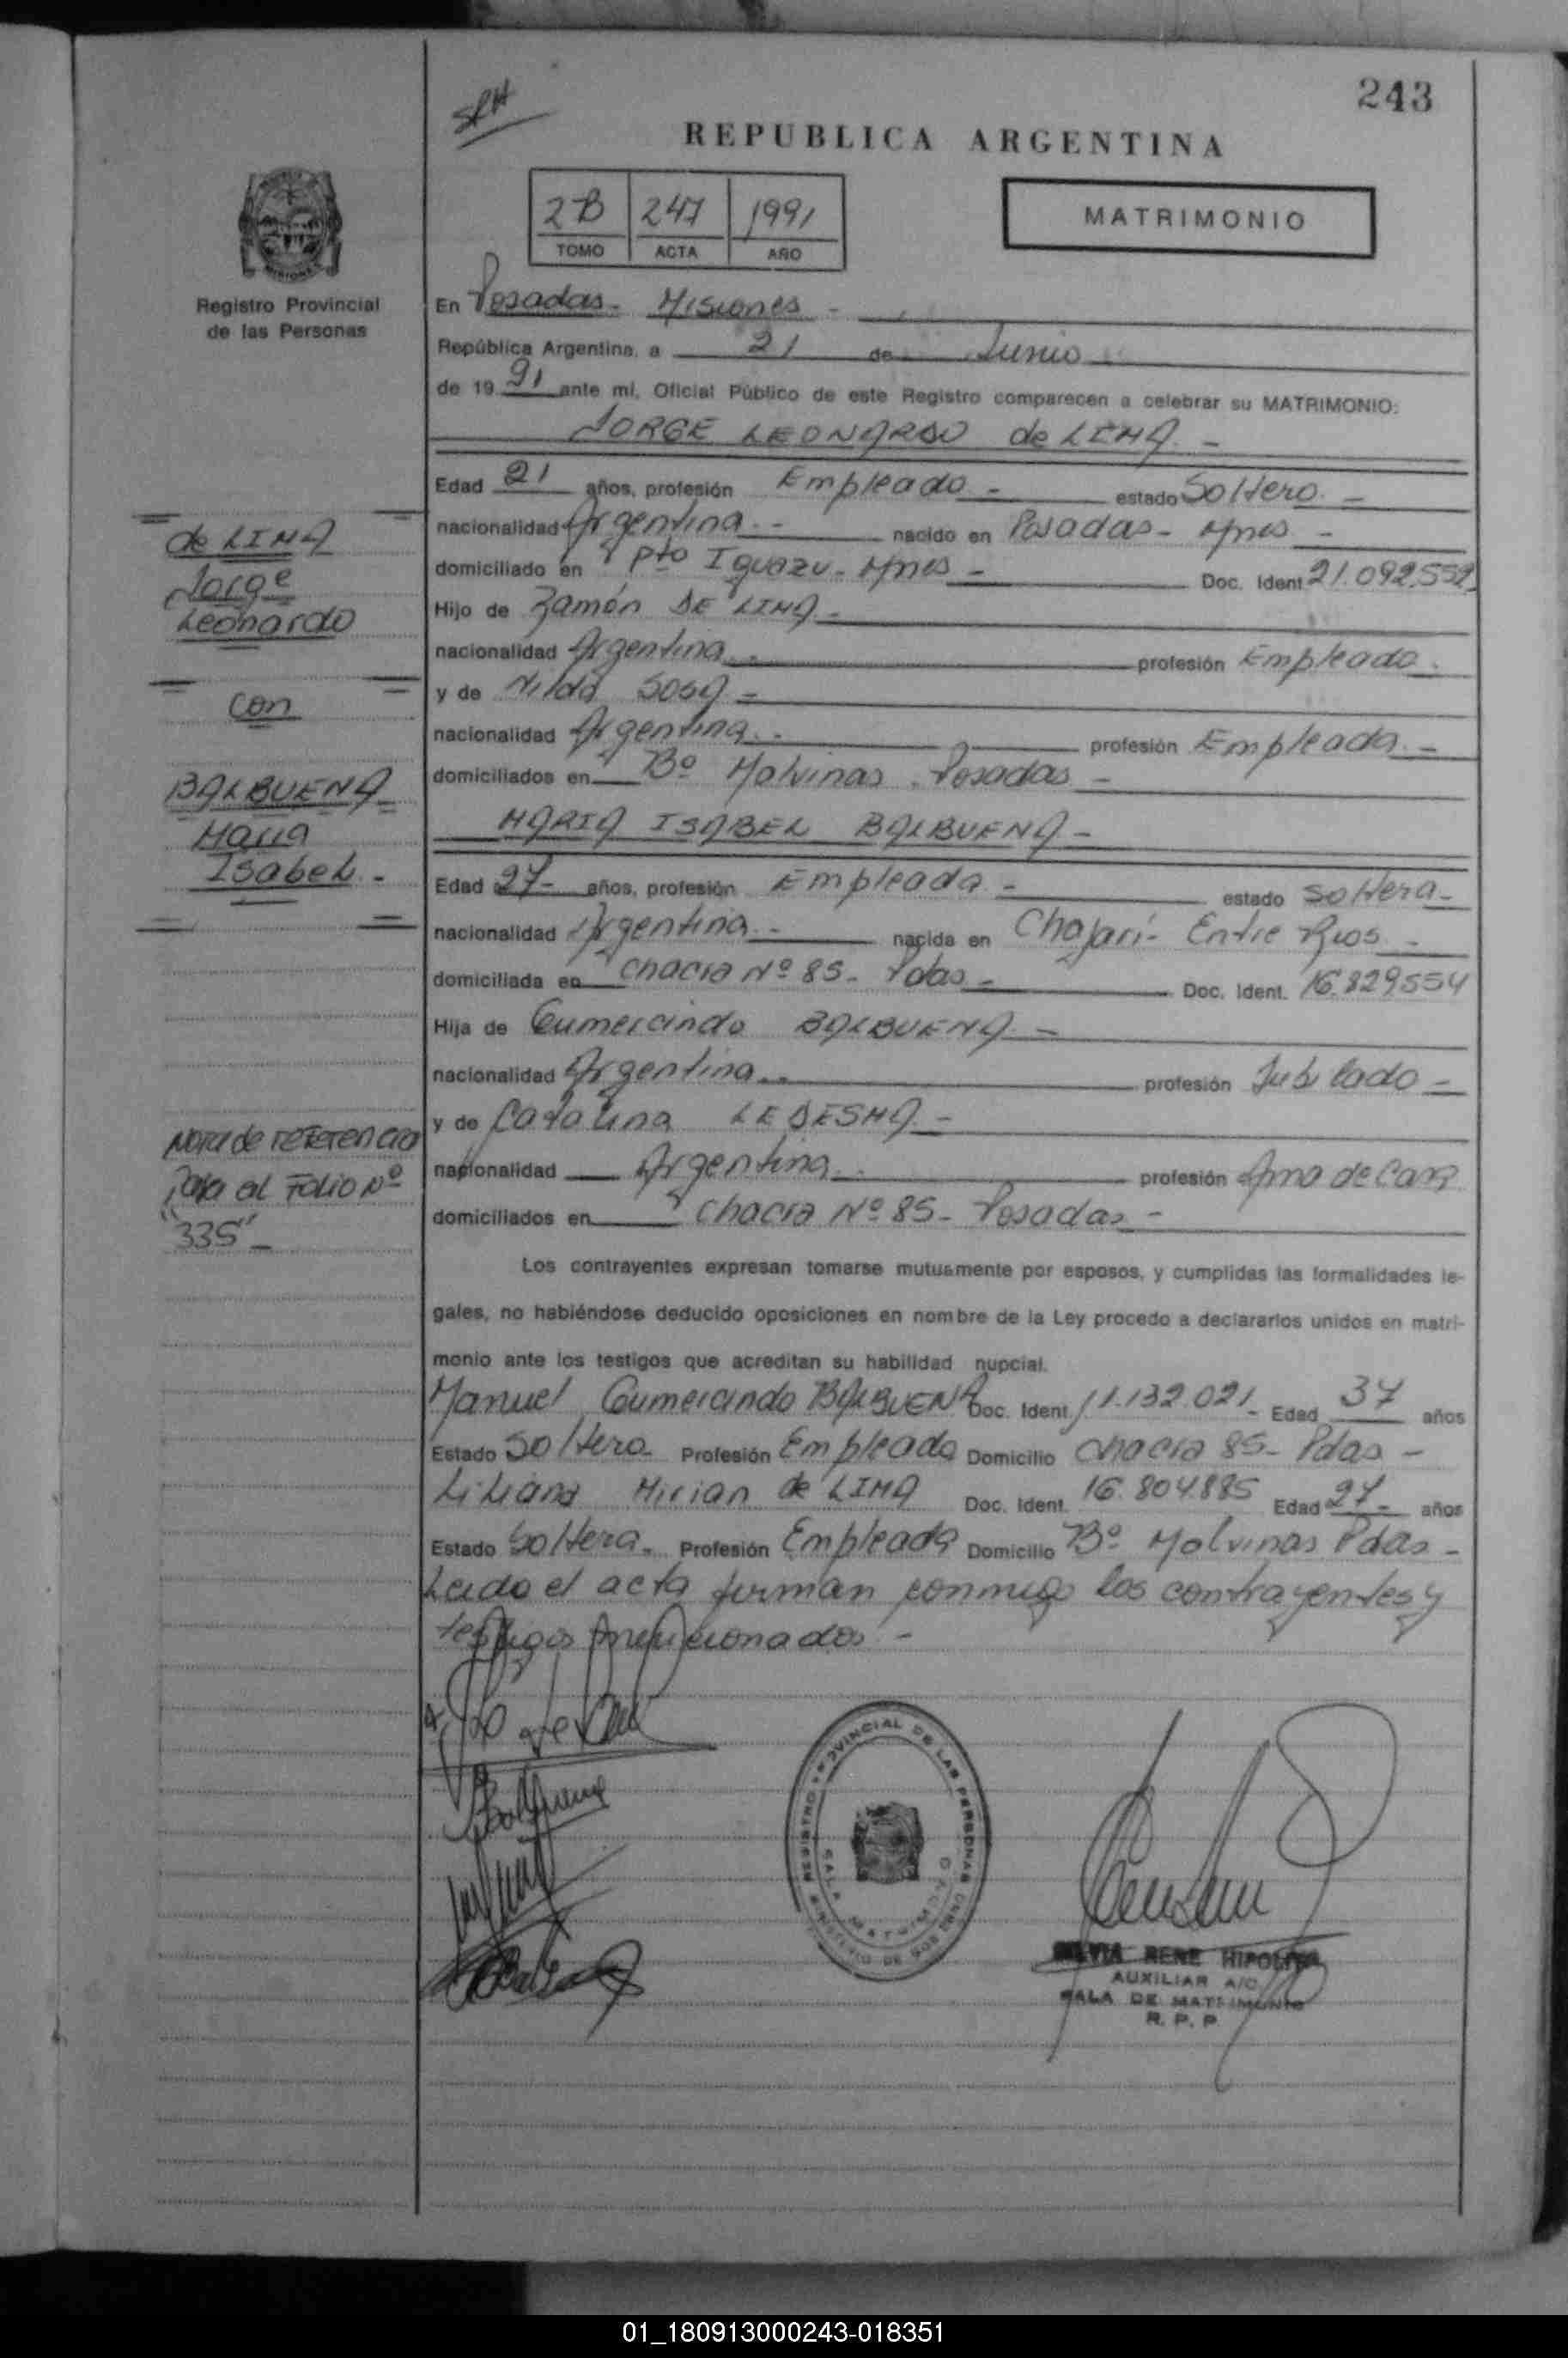 243
SRH
REPUBLICA ARGENTINA
2B 247 1991
TOMO ACTA AÑO
MATRIMONIO
MISIONES
Registro Provincial
de las Personas
En Posadas - Misiones -
República Argentina, a 21 de Junio
de 1991 ante mí, Oficial Público de este Registro comparecen a celebrar su MATRIMONIO:
JORGE LEONARDO de LIMA -
Edad 21 años, profesión Empleado - estado Soltero. -
nacionalidad Argentina. - nacido en Posadas - Mnes -
domiciliado en Pto Iguazu - Mnes - Doc. Ident 21.092.559
Hijo de Ramón DE LIMA -
nacionalidad Argentina. - profesión Empleado.
y de Nilda SOSA -
nacionalidad Argentina. - profesión Empleada. -
domiciliados en Bº Malvinas. Posadas -
MARIA ISABEL BALBUENA -
Edad 27 - años, profesión Empleada - estado soltera -
nacionalidad Argentina. - nacida en Chajarí - Entre Rios -
domiciliada en chacra Nº 85 - Pdas - Doc. Ident. 16.829.554
Hija de Gumercindo BALBUENA -
nacionalidad Argentina. - profesión Jubilado -
y de Catalina LEDESMA -
nacionalidad Argentina. profesión Ama de Casa
domiciliados en chacra Nº 85 - Posadas -
Los contrayentes expresan tomarse mutuamente por esposos, y cumplidas las formalidades le-
gales, no habiéndose deducido oposiciones en nombre de la Ley procedo a declararlos unidos en matri-
monio ante los testigos que acreditan su habilidad nupcial.
Manuel Gumercindo BALBUENA Doc. Ident 11.132.021 - Edad 37 años
Estado Soltero - Profesión Empleado Domicilio chacra 85 - Pdas -
Liliana Mirian de LIMA Doc. Ident. 16.804.885 Edad 27 - años
Estado Soltera - Profesión Empleada Domicilio Bº Malvinas Pdas -
Leida el acta firman conmigo los contrayentes y
testigos mencionados -
de LIMA
Jorge
Leonardo
con
BALBUENA
Maria
Isabel -
Nota de referencia
para al Folio Nº
"335" -
REGISTRO PROVINCIAL DE LAS PERSONAS
SALA MATRIMONIO
SILVIA RENE HIPOLITO
AUXILIAR A/C
SALA DE MATRIMONIO
R. P. P
01_180913000243-018351